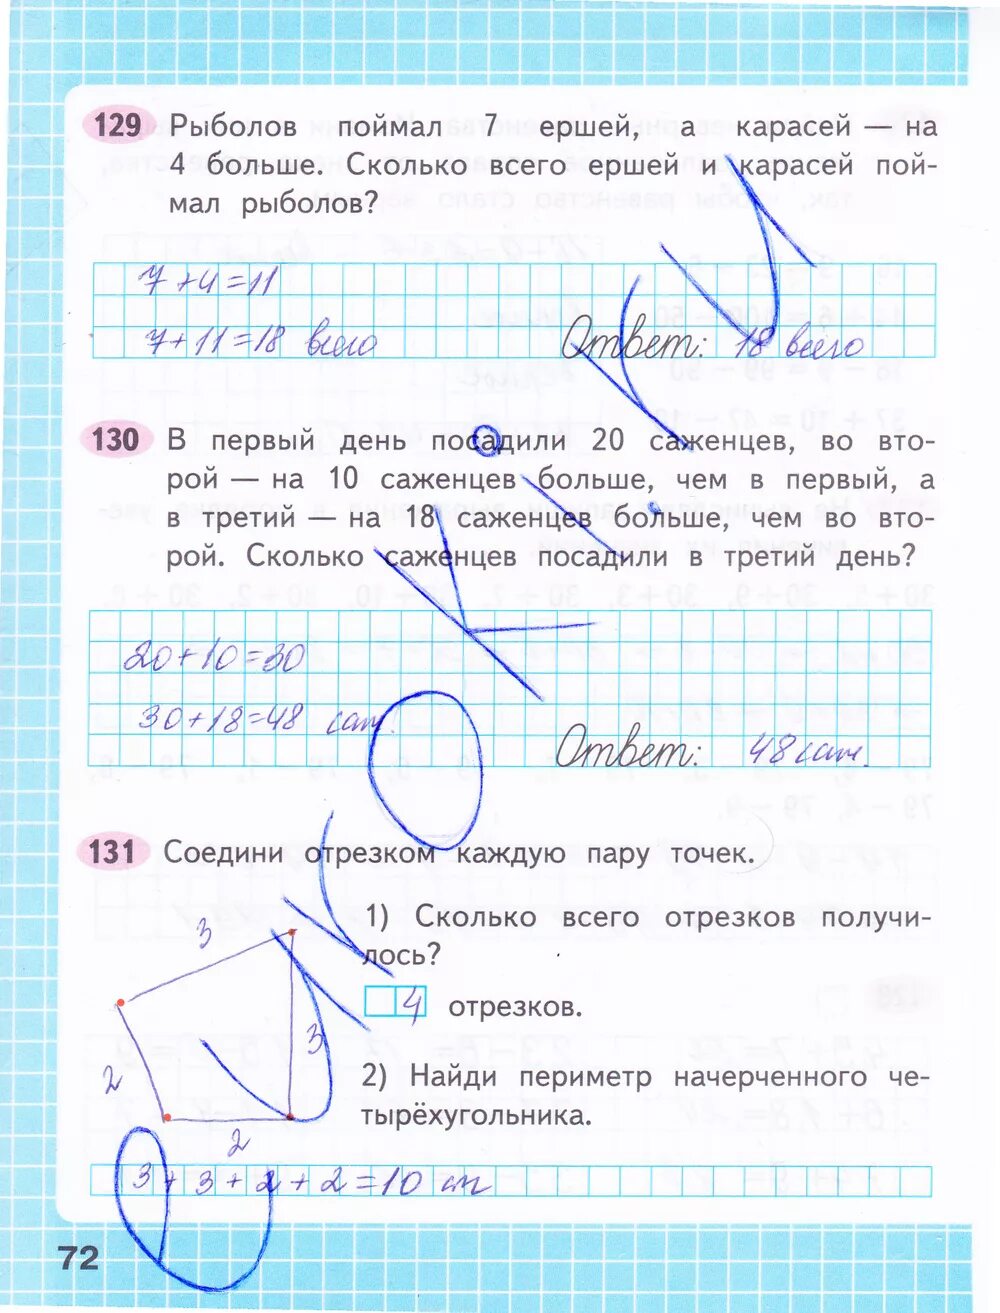 129 Рыболов поймал 7 ершей, а карасей — на
4 больше. Сколько всего ершей и карасей пой-
мал рыболов?
7+4=11
7+11=18 всего
Ответ: 18 всего
130 В первый день посадили 20 саженцев, во вто-
рой — на 10 саженцев больше, чем в первый, а
в третий — на 18 саженцев больше, чем во вто-
рой. Сколько саженцев посадили в третий день?
20+10=30
30+18=48 саж.
Ответ: 48 саж.
131 Соедини отрезком каждую пару точек.
1) Сколько всего отрезков получи-
лось?
4 отрезков.
2) Найди периметр начерченного че-
тырёхугольника.
3
3
2
2
3+3+2+2=10 см
72